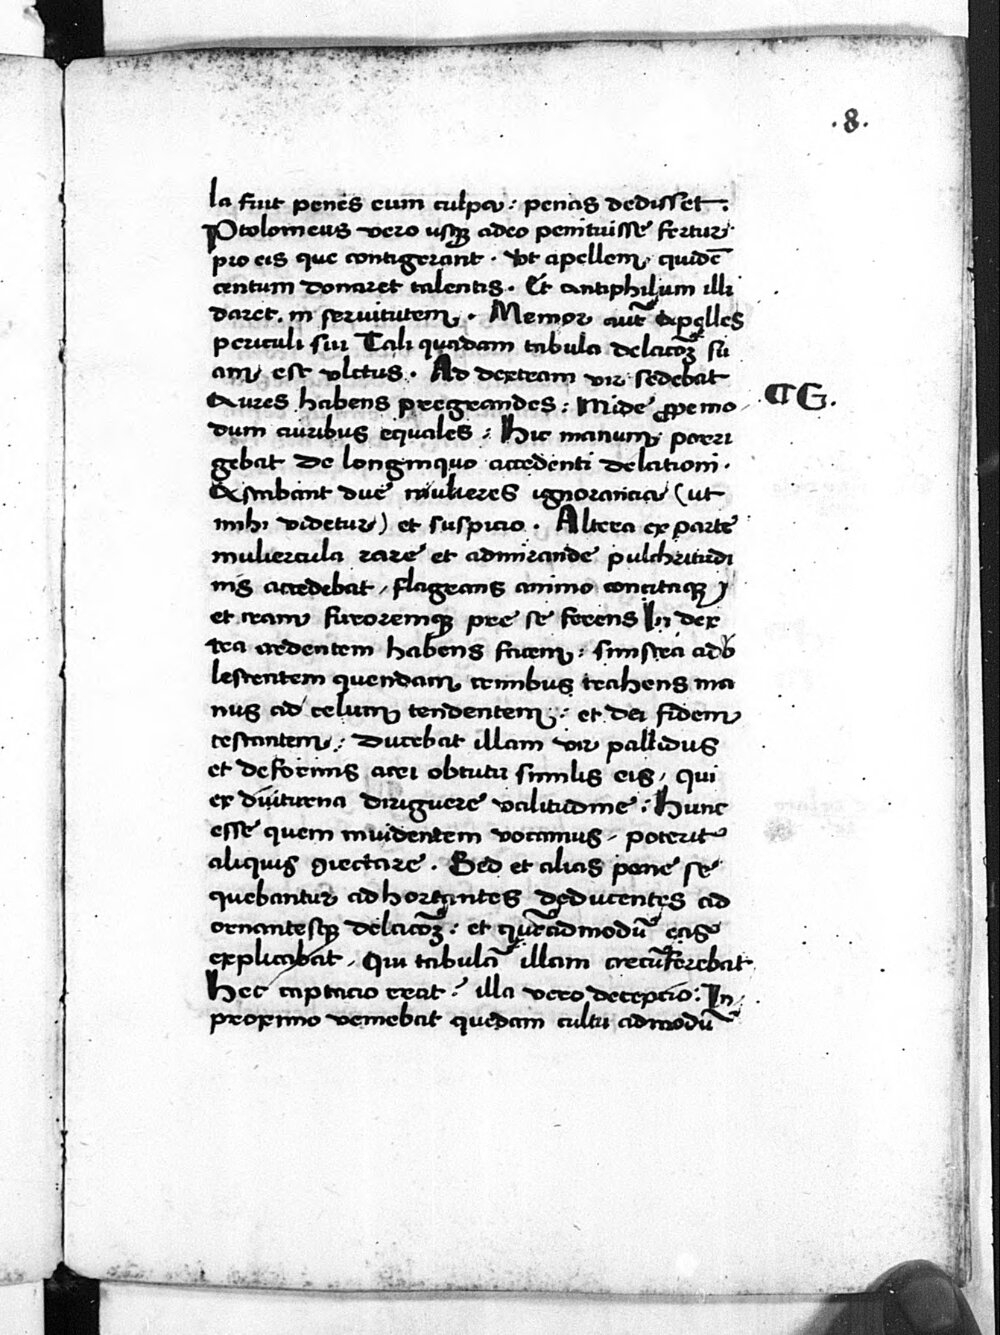 .8.
la fuit penes eum culpa : penas dedisset.
Ptolomeus vero usqꝫ adeo penituisse fertur
pro eis que contigerant . Ut apellem quidē
centum donaret talentis . Et antiphilum illi
daret in servitutem . Memor aut̄ apelles
periculi sui Tali quadam tabula delacōꝫ su
am est ultus . Ad dexteram vir sedebat
Aures habens pregrandes : Mide ꝓpemo
dum auribus equales : Hic manum porri
gebat de longinquo accedenti delationi .
Astabant due mulieres ignorancia (ut
mihi videtur) et suspicio . Altera ex parte
muliercula rare et admirande pulchritudi
nis accedebat / flagrans animo concitaqꝫ
et iram furoremqꝫ pre se ferens In dex
tra ardentem habens facem : sinistra ado
lescentem quendam crinibus trahens ma
nus ad celum tendentem : et dei fidem
testantem : Ducebat illam vir pallidus
et deformis acri obtutu similis eis / qui
ex diuturna diriguere valitudine : Hunc
esse quem invidentem vocamus / poterit
aliquis ꝯiectare . Sed et alias pone se
quebantur adhortantes deducentes ad
ornantesqꝫ delacōꝫ : et quēadmodū eas
explicabat / Qui tabulā illam circūferebat
Hec captacio erat : illa vero decepcio : In
proximo veniebat quedam cultu admodū
¶ G.